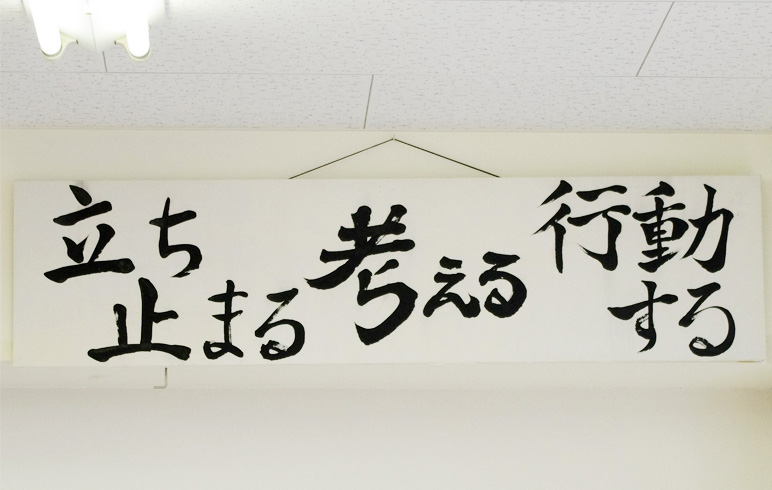 立ち止まる
考える
行動する